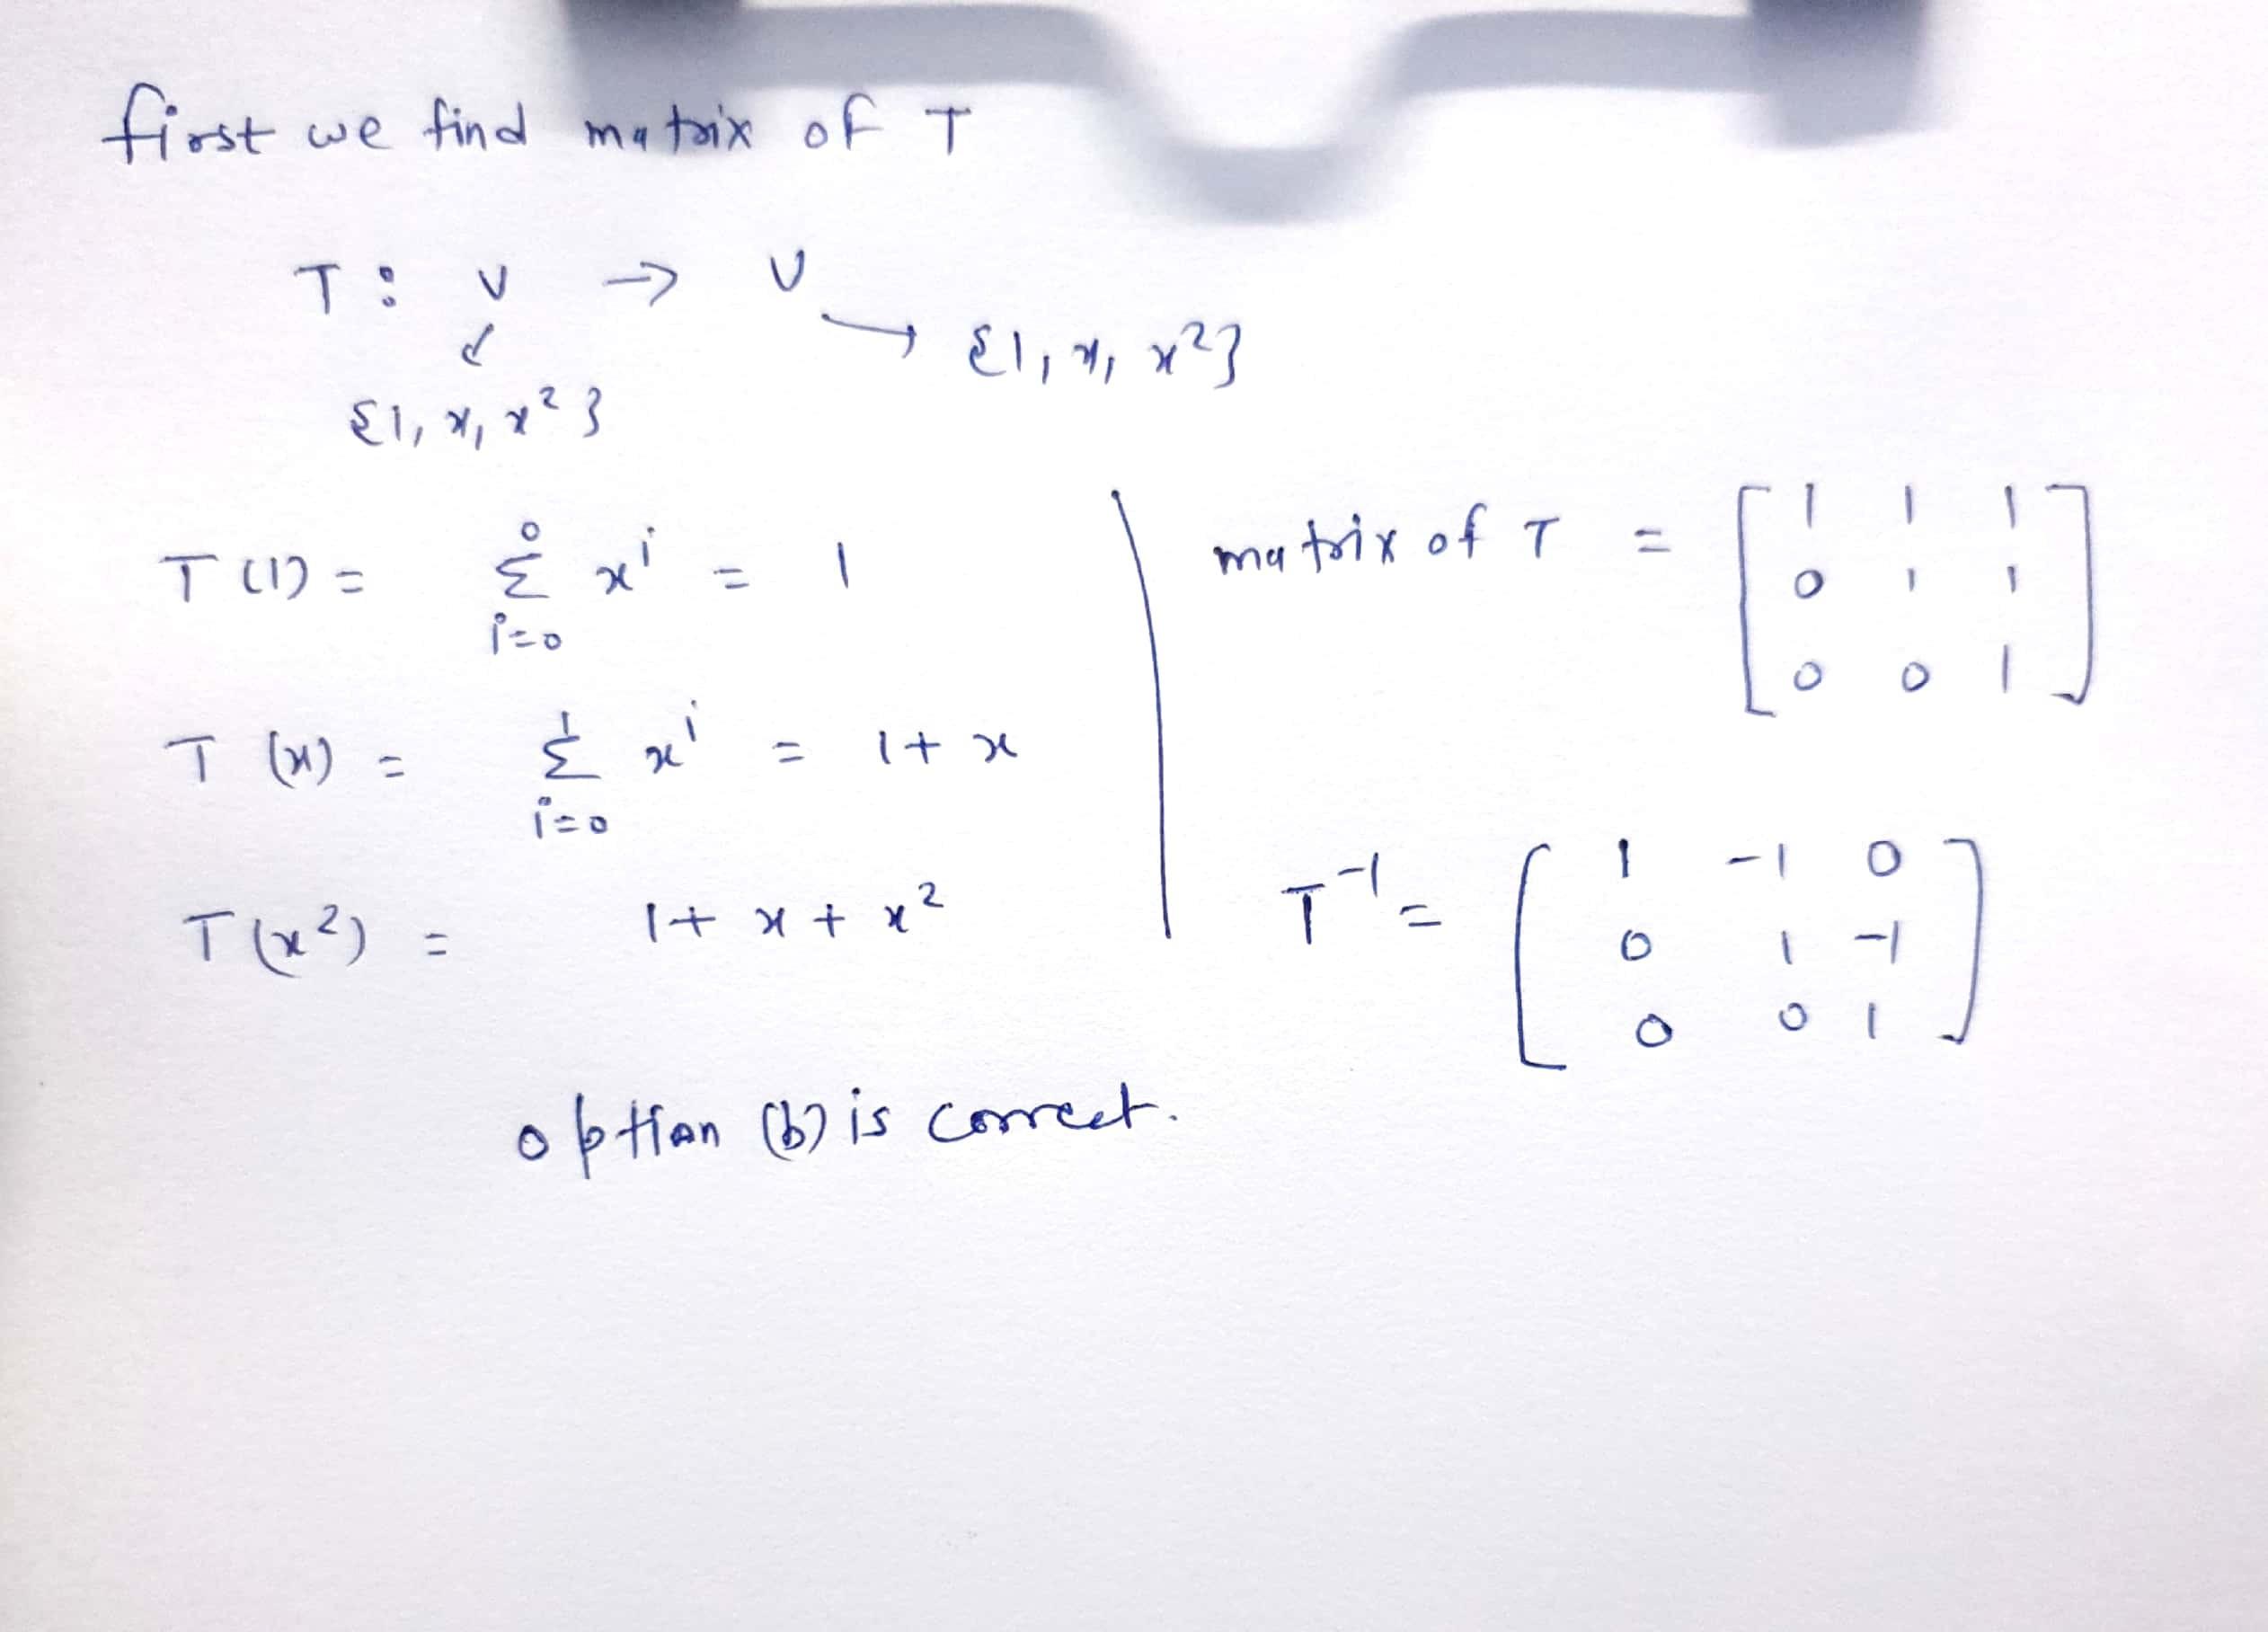 first we find matrix of T
T : V → V
↓
{1, x, x²}
→ {1, x, x²}
T (1) = \sum_{i=0}^{0} x^i = 1
T (x) = \sum_{i=0}^{1} x^i = 1 + x
T (x²) = 1 + x + x²
matrix of T = [1 1 1
0 1 1
0 0 1]
T⁻¹ = [1 -1 0
0 1 -1
0 0 1]
option (b) is correct.